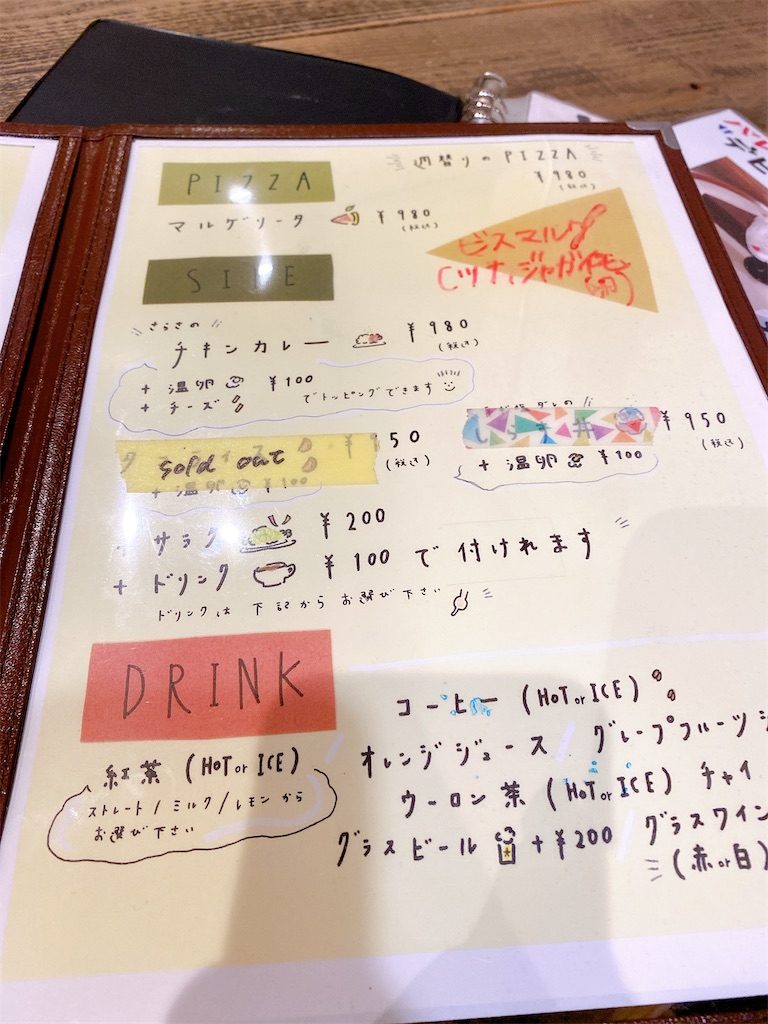 PIZZA
週替りのPIZZA
¥980
(税込)
マルゲリータ ¥980
(税込)
ビスマルク
(ツナ、ジャガイモ、
卵)
SIDE
さらさの
チキンカレー ¥980
(税込)
+ 温卵 ¥100
+ チーズ でトッピングできます
sold out ¥950
(税込)
+ 温卵 ¥100
しらす丼 ¥950
(税込)
+ 温卵 ¥100
+ サラダ ¥200
+ ドリンク ¥100 で付けれます
ドリンクは下記からお選び下さい
DRINK
コーヒー (HOT or ICE)
紅茶 (HOT or ICE)
ストレート/ミルク/レモンから
お選び下さい
オレンジジュース / グレープフルーツジ
ウーロン茶 (HOT or ICE) チャイ
グラスビール +¥200 / グラスワイン
(赤 or 白)